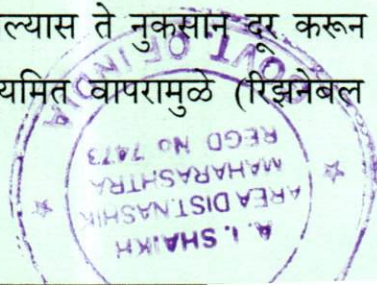 ल्यास ते नुकसान दूर करून
यमित वापरामुळे (रिझनेबल
GOVT OF INDIA
A. I. SHAIKH
AREA DIST.NASHIK
MAHARASHTRA
REGD No 7473